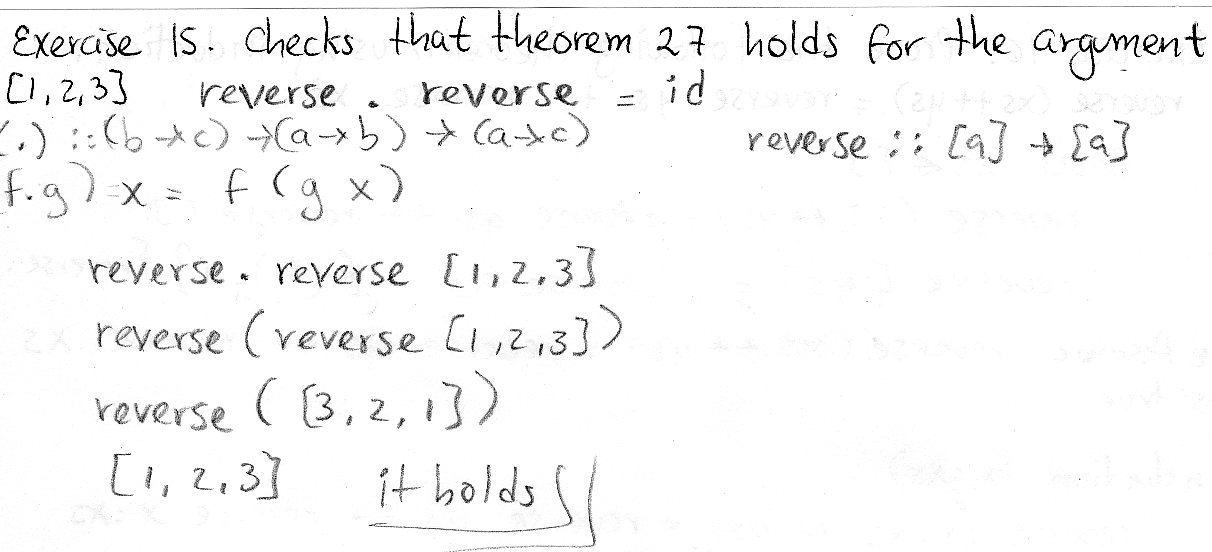 Exercise 15. Checks that theorem 27 holds for the argument
[1,2,3] reverse . reverse = id
(.) :: (b → c) → (a → b) → (a → c) reverse :: [a] → [a]
f.g) x = f (g x)
reverse . reverse [1,2,3]
reverse (reverse [1,2,3])
reverse ([3,2,1])
[1,2,3] it holds